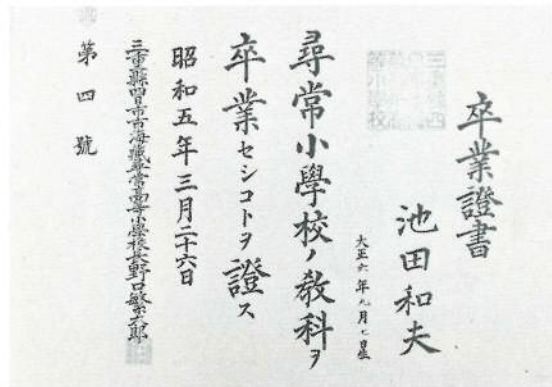 卒業證書
池田和夫
大正六年九月七日生
尋常小學校ノ敎科ヲ
卒業セシコトヲ證ス
昭和五年三月二十六日
三重縣四日市市海藏尋常高等小學校長野口繁太郎
第四號